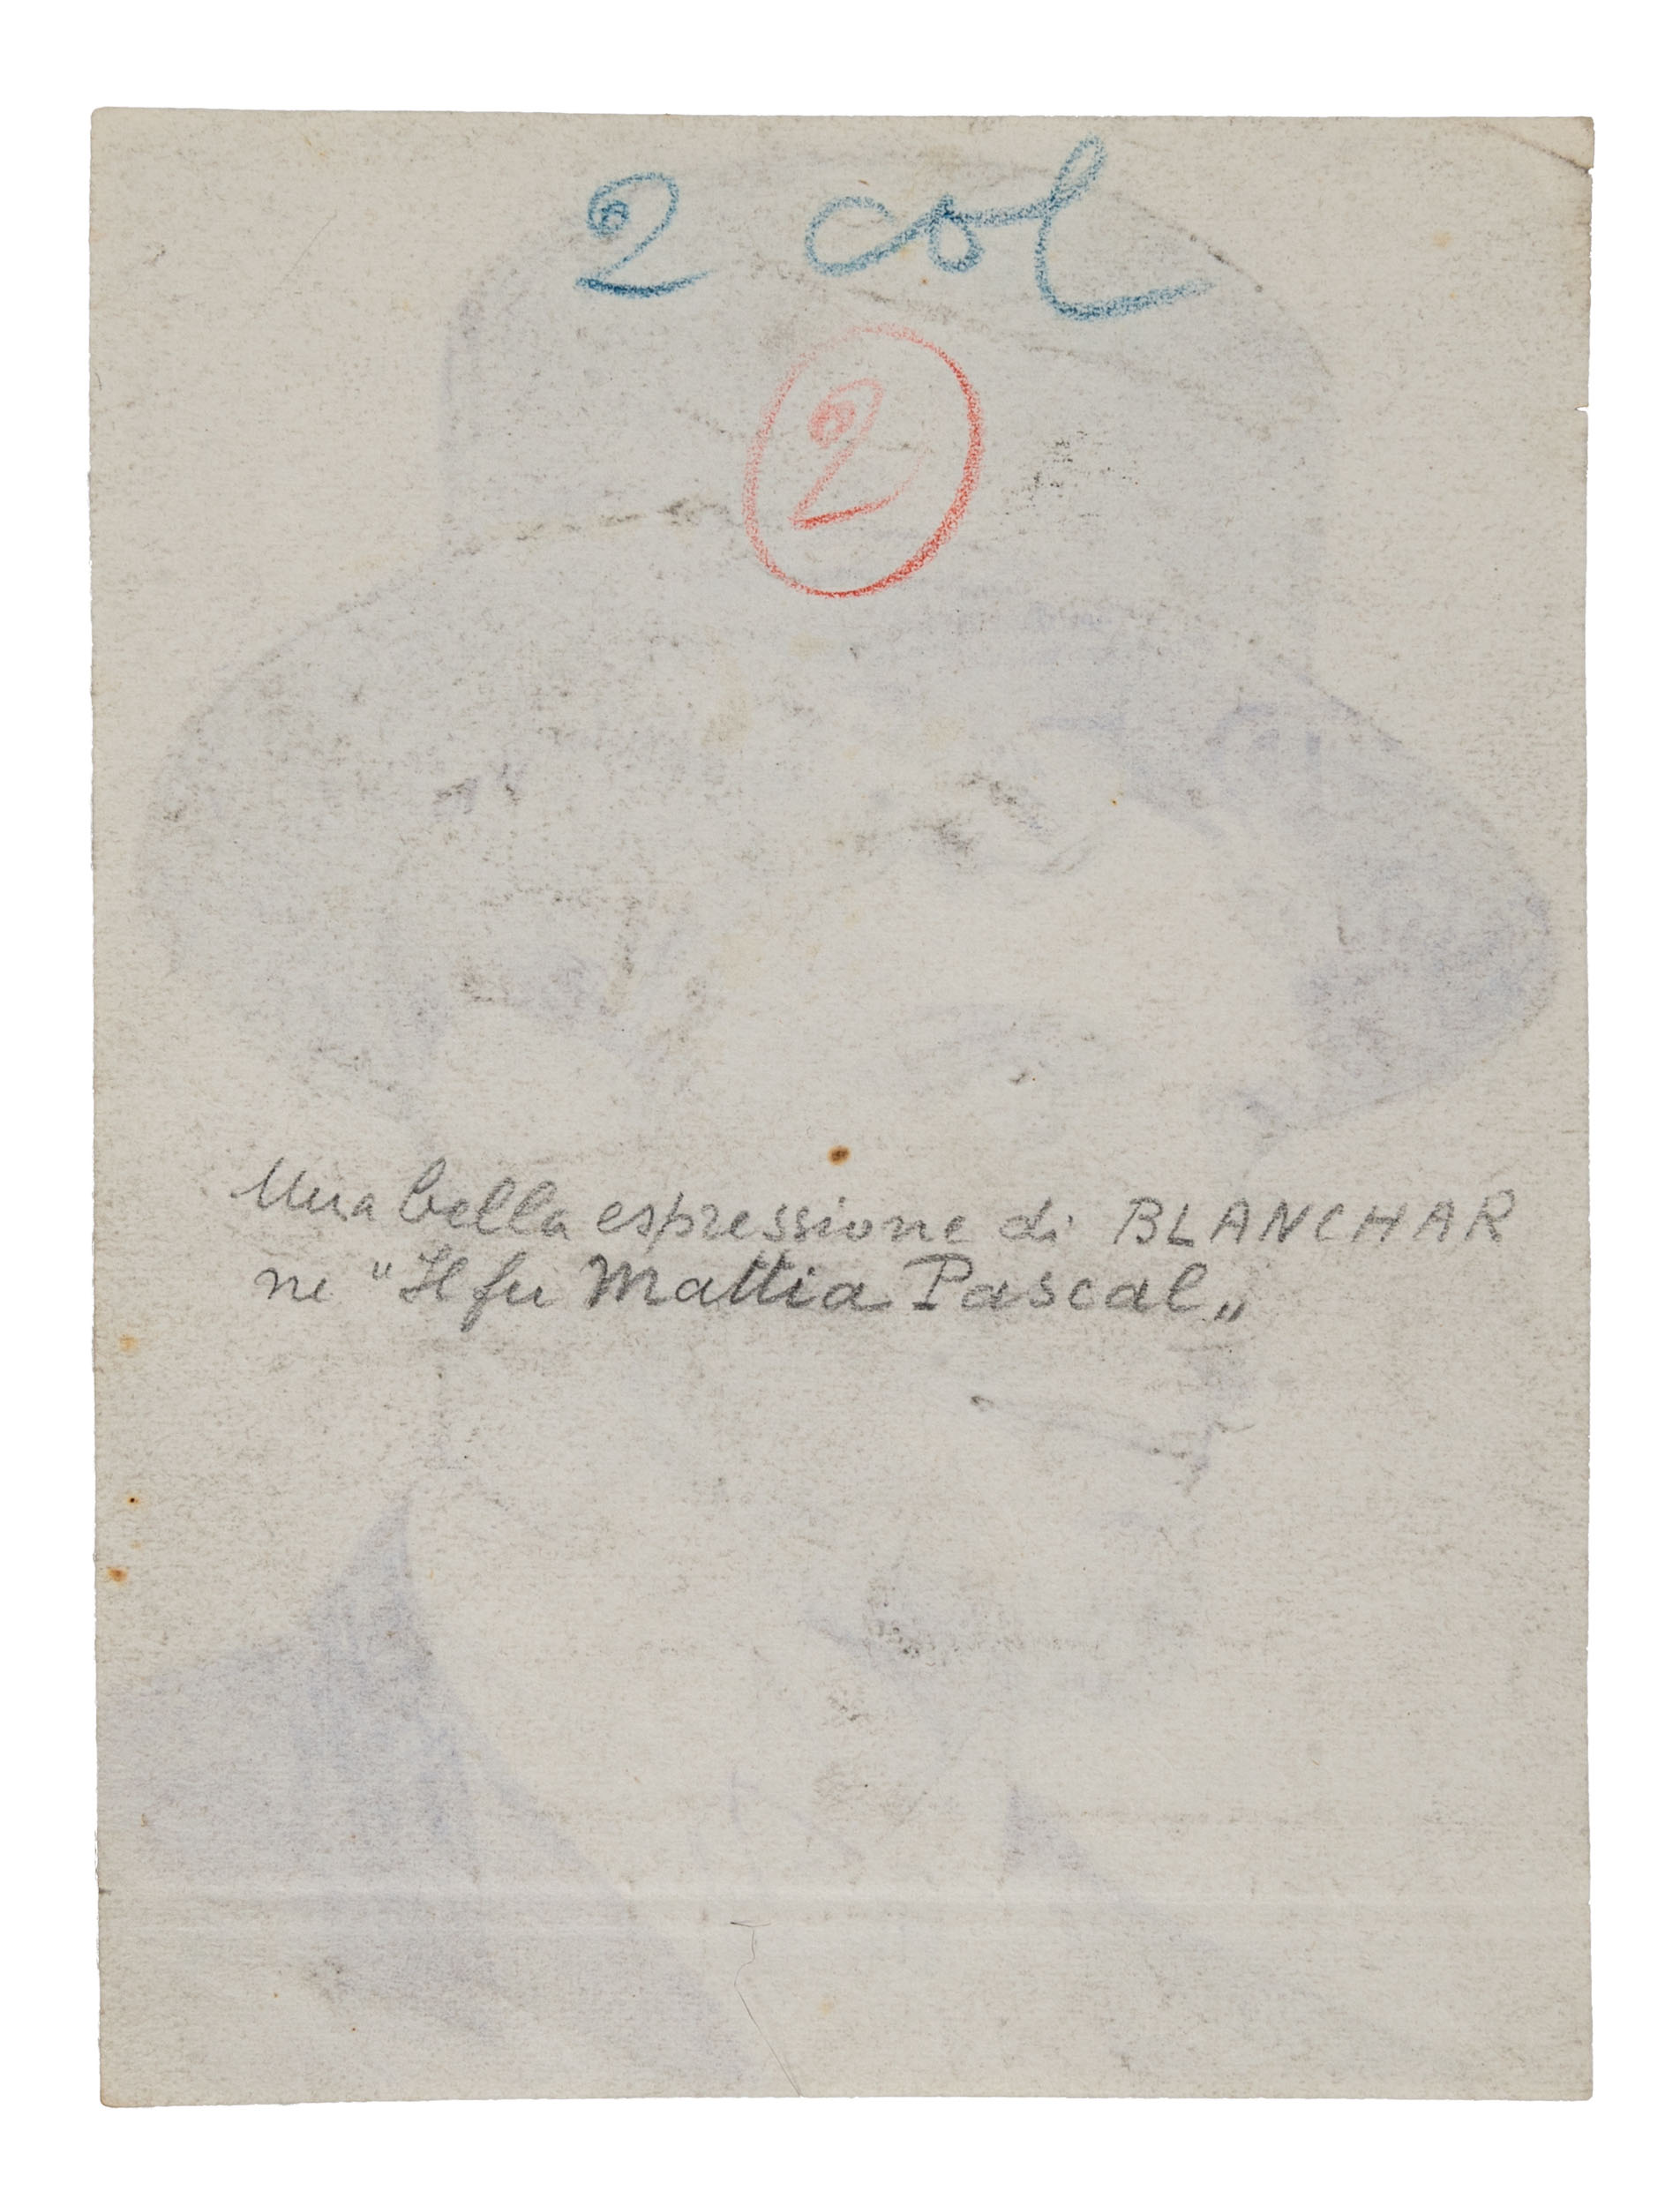 2 col
2
Una bella espressione di BLANCHAR
ne "Il fu Mattia Pascal„